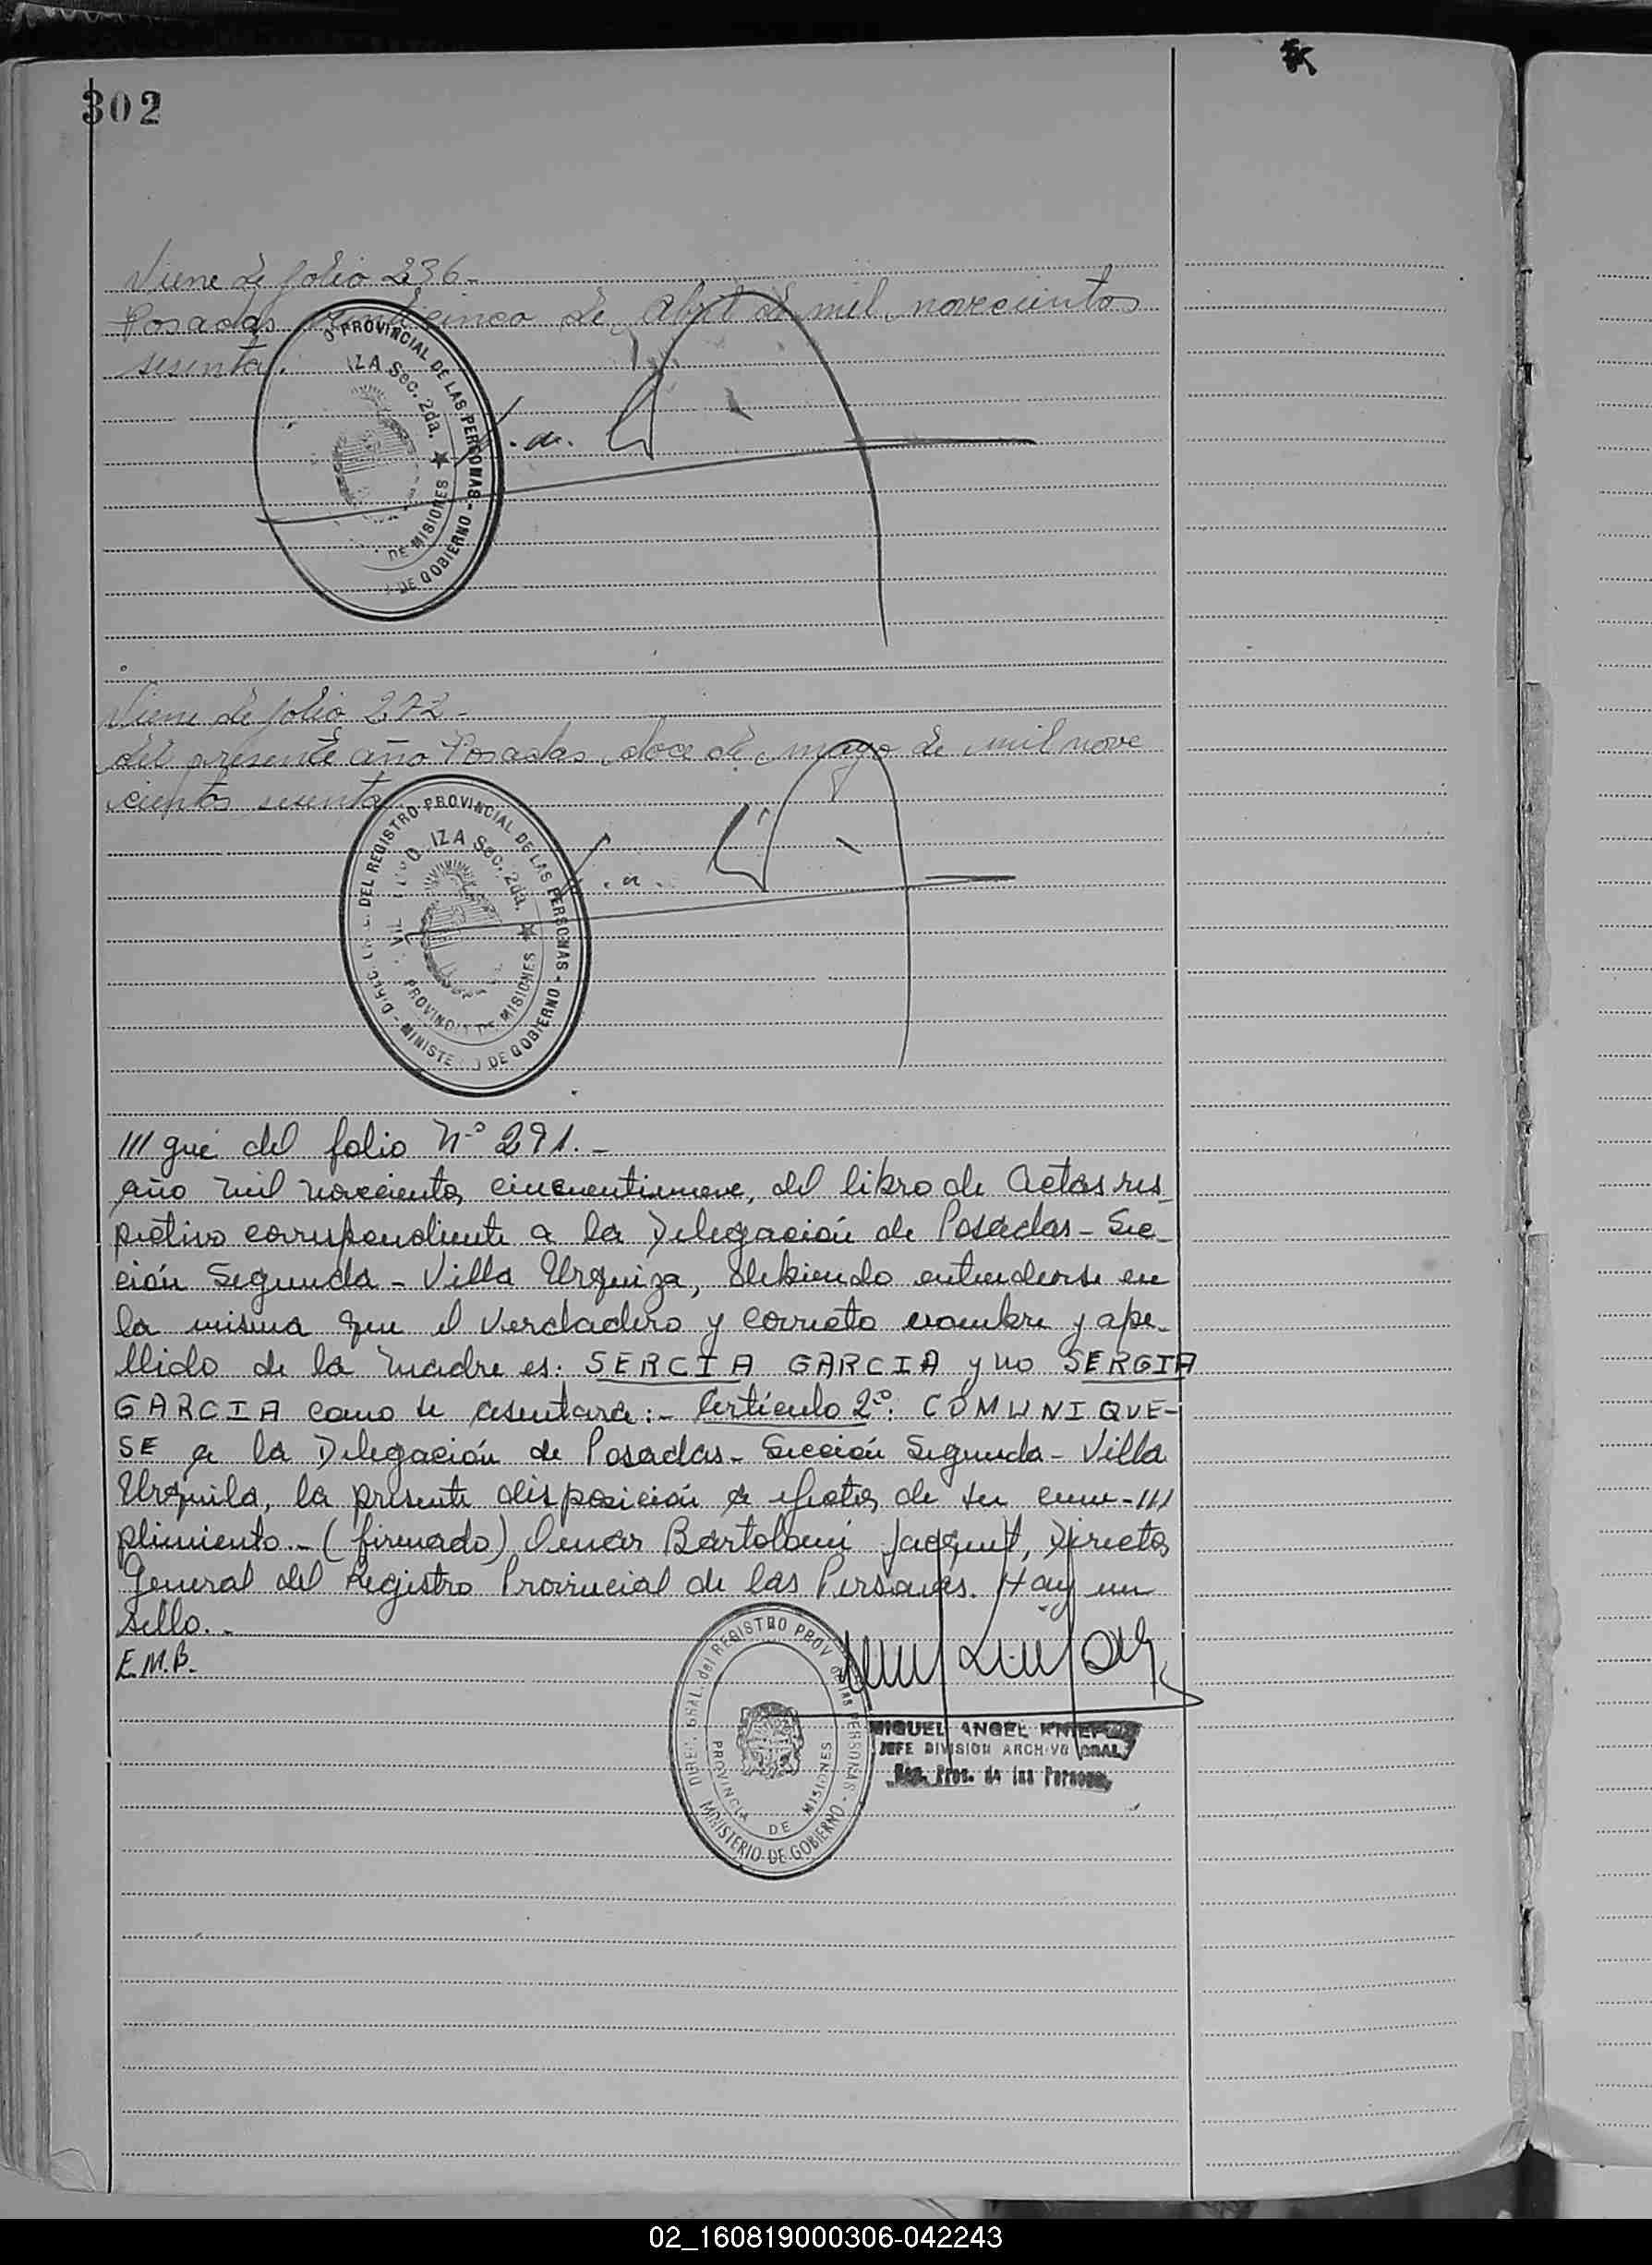 302
Viene de folio 236-
Posadas veinticinco de Abril de mil novecientos
sesenta.
O PROVINCIAL DE LAS PERSONAS - DE GOBIERNO
IZA Sec. 2da.
DE MISIONES
Viene de folio 272-
del presente año Posadas doce de mayo de mil nove
cientos sesenta
DEL REGISTRO PROVINCIAL DE LAS PERSONAS -
IZA Sec. 2da.
DE MISIONES
DE GOBIERNO
/// gue del folio Nº 291.-
año mil novecientos cincuentinueve, del libro de Actas res
pectivo correspondiente a la Delegación de Posadas - Sec-
ción Segunda - Villa Urquiza, debiendo entenderse en
la misma que el verdadero y correcto nombre y ape-
llido de la madre es: SERCIA GARCIA y no SERGIA
GARCIA como se asentara:- Artículo 2º: COMUNIQUE-
SE a la Delegación de Posadas - Sección Segunda - Villa
Urquila, la presente disposición a efectos de su cum-///
plimiento.- (firmado) Omar Bartolomé Jacquet, Director
General del Registro Provincial de las Personas. Hay un
sello.-
E.M.B.
GRAL. del REGISTRO PROV de las PERSONAS -
PROVINCIA DE MISIONES
MINISTERIO DE GOBIERNO
MIGUEL ANGEL
JEFE DIVISION ARCHIVO GRAL.
Reg. Prov. de las Personas
02_160819000306-042243